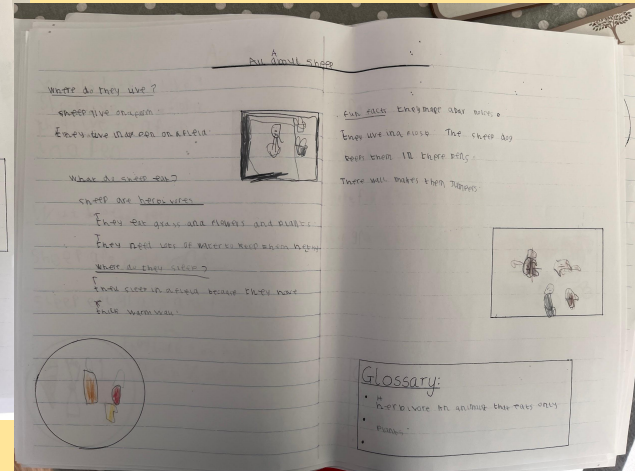 All about sheep
Where do they live?
sheep live on a farm.
they live in a pen or a field
What do sheep eat?
sheep are herbivores
They eat grass and flowers and plants
They need lots of water to keep them
Where do they sleep?
They sleep in a field because they have
thick warm wool.
fun facts they make a baa noise.
they live in a flock The sheep dog
keep them in there pens.
There wall makes them jumpers.
Glossary:
Herbivore an animal that eats only
plants.